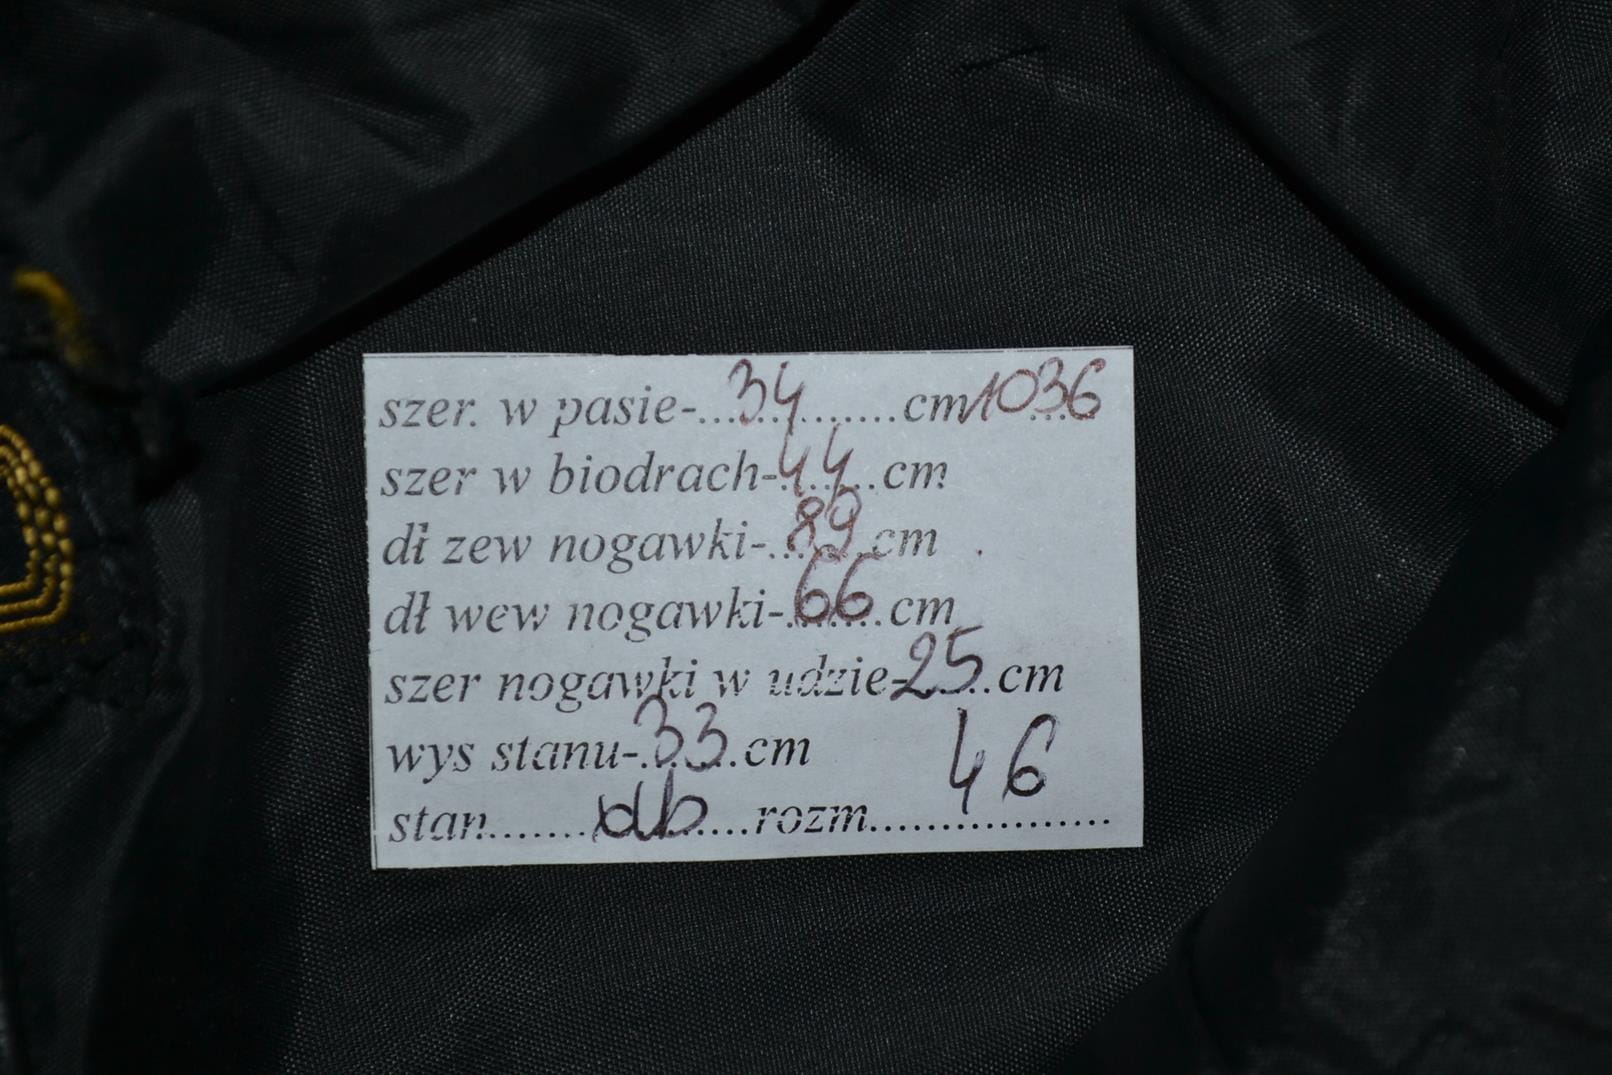 szer. w pasie-...34.......cm 1036
szer w biodrach-44..cm
dł zew nogawki-..89.cm
dł wew nogawki-.66..cm
szer nogawki w udzie-25..cm
wys stanu-.33.cm
stan.......db....rozm....46............